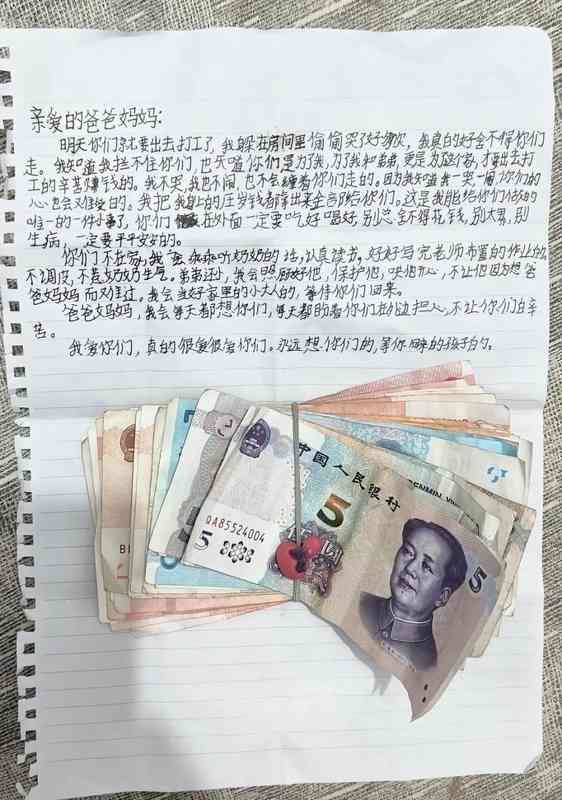 亲爱的爸爸妈妈:
明天你们就要出去打工了,我躲在房间里偷偷哭了好多次,我真的好舍不得你们
走。我知道我拦不住你们,也知道你们是为了我,为了我和弟弟,更是为这个家,才要出去打
工的辛苦赚钱的。我不哭,我也不闹,也不会缠着你们走的。因为我知道我一哭一闹你们的
心也会难受的。我把我的压岁钱都拿出来全部给你们。这是我能给你们做的
唯一的一件小事了,你们在外面一定要吃好喝好,别总舍不得花钱,别太累,别
生病,一定要平平安安的。
你们不在家,我会乖乖听奶奶的话,认真读书,好好写完老师布置的作业
不调皮,不惹奶奶生气。弟弟还小,我会照顾好他,保护他,哄他开心,不让他因为想爸
爸妈妈而难过。我会当好家里的小大人的,等待你们回来。
爸爸妈妈,我会每天都想你们,每天都盼着你们在身边把心,不让你们白辛
苦。
我爱你们,真的很爱很爱你们。永远想你们的,等你回来的孩子的。
中国人民银行
QA85524004
5
5
5